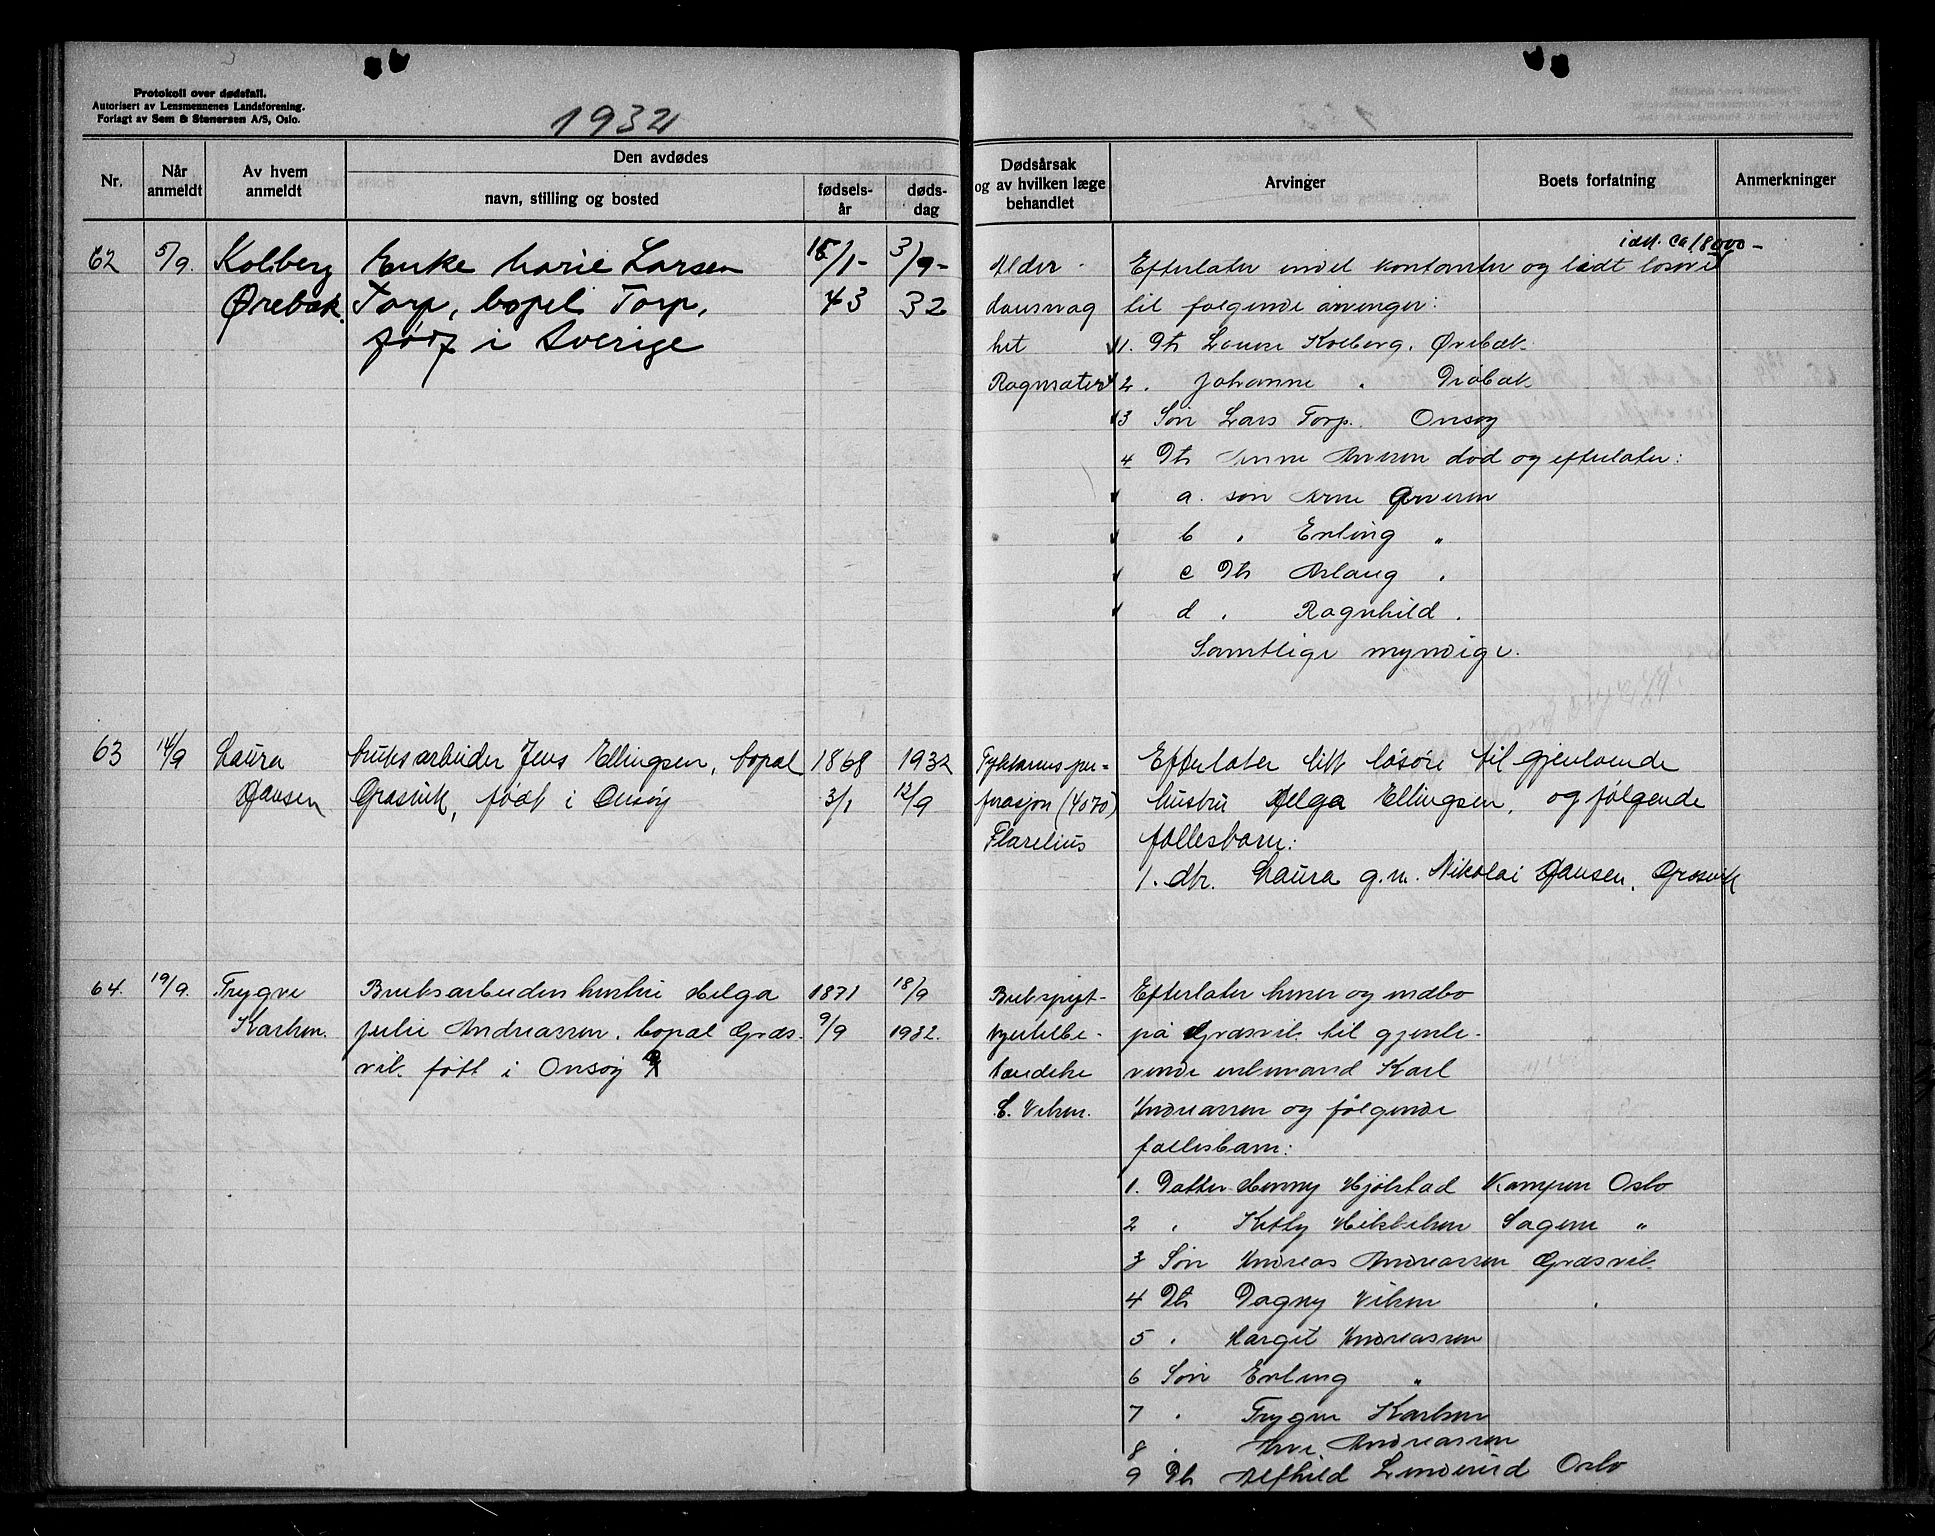 Protokoll over dødsfall.
Autorisert av Lensmennenes Landsforening.
Forlagt av Sem & Stenersen A/S, Oslo.
1932
Nr.
Når anmeldt
Av hvem anmeldt
Den avdødes
navn, stilling og bosted
fødsels-år
døds-dag
Dødsårsak og av hvilken læge behandlet
Arvinger
Boets forfatning
Anmerkninger
62 5/9. Kolberg Enke Marie Larsen 15/1- 3/9-
Ørebæk. Torp, bopel Torp, 43 32
født i Sverige
Alder-
domsvag
het
idet. ca 18000-
Efterlater endel kontanter og lidt løsøre
til følgende arvinger:
1. Dtr Kolberg, Ørebæk
2. Johanne " Drøbak
3 Søn Lars Torp. Onsøy
4 Dtr død og efterlater:
a. søn Arne
b " Erling "
c Dtr Aslaug "
d " Ragnhild "
Samtlige myndige.
63 14/9 Laura bruksarbeider Jens Ellingsen, bopæl 1868 1932
Hansen Græsvik, født i Onsøy 3/1 12/9
forasjon (4070)
Flarelius
Efterlater litt løsøre til gjenlevende
hustru Helga Ellingsen, og følgende
fællesbarn:
1. dtr. Laura g.m. Nikolai Hansen, Græsvik
64. 19/9. Trygve Bruksarbeider hustru Helga 1871 18/9
Karlsen. Julie Andreassen, bopæl Græs- 9/9 1932.
vik født i Onsøy
Brukspjist-
hjertelbe-
tændelse
E. Vilsen.
Efterlater huser og indbo
på Græsvik til gjenle-
vende enkemand Karl
Andreassen og følgende
fællesbarn:
1. Datter Henny Hjølstad Kampen Oslo
2 " Kitty Sagene "
3 Søn Andreas Andreassen Græsvik
4 Dtr Dagny Vilsen "
5 " Margit Andreassen
6 Søn Erling "
7 " Trygve Karlsen
8 " Andreassen
9 Dtr Alfhild Linderud Oslo